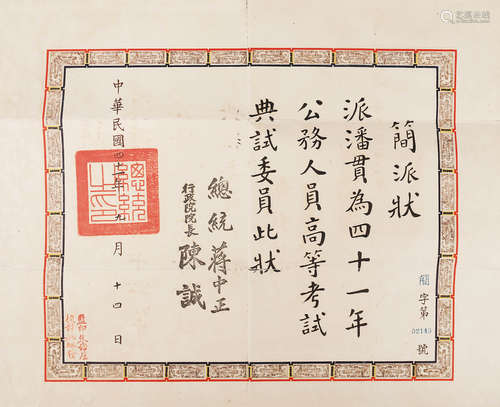 簡派狀
派潘貫為四十一年
公務人員高等考試
典試委員此狀
總統 蔣中正
行政院院長 陳誠
中華民國四十一年九月十四日
簡字第02149號
總統之印